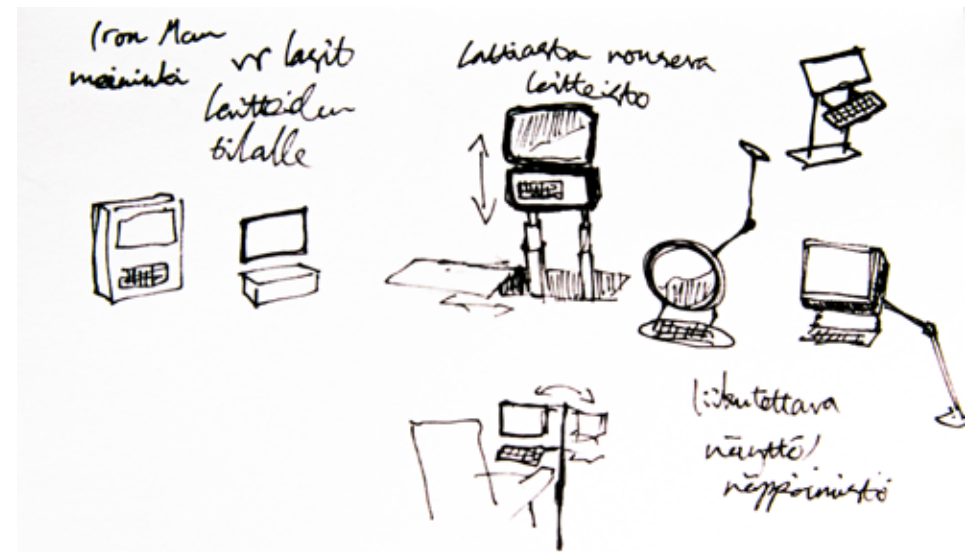 Iron Man
meininki
vr lasit
laitteiden
tilalle
Lattiasta nouseva
laitteisto
liikutettava
näyttö/
näppäimistö